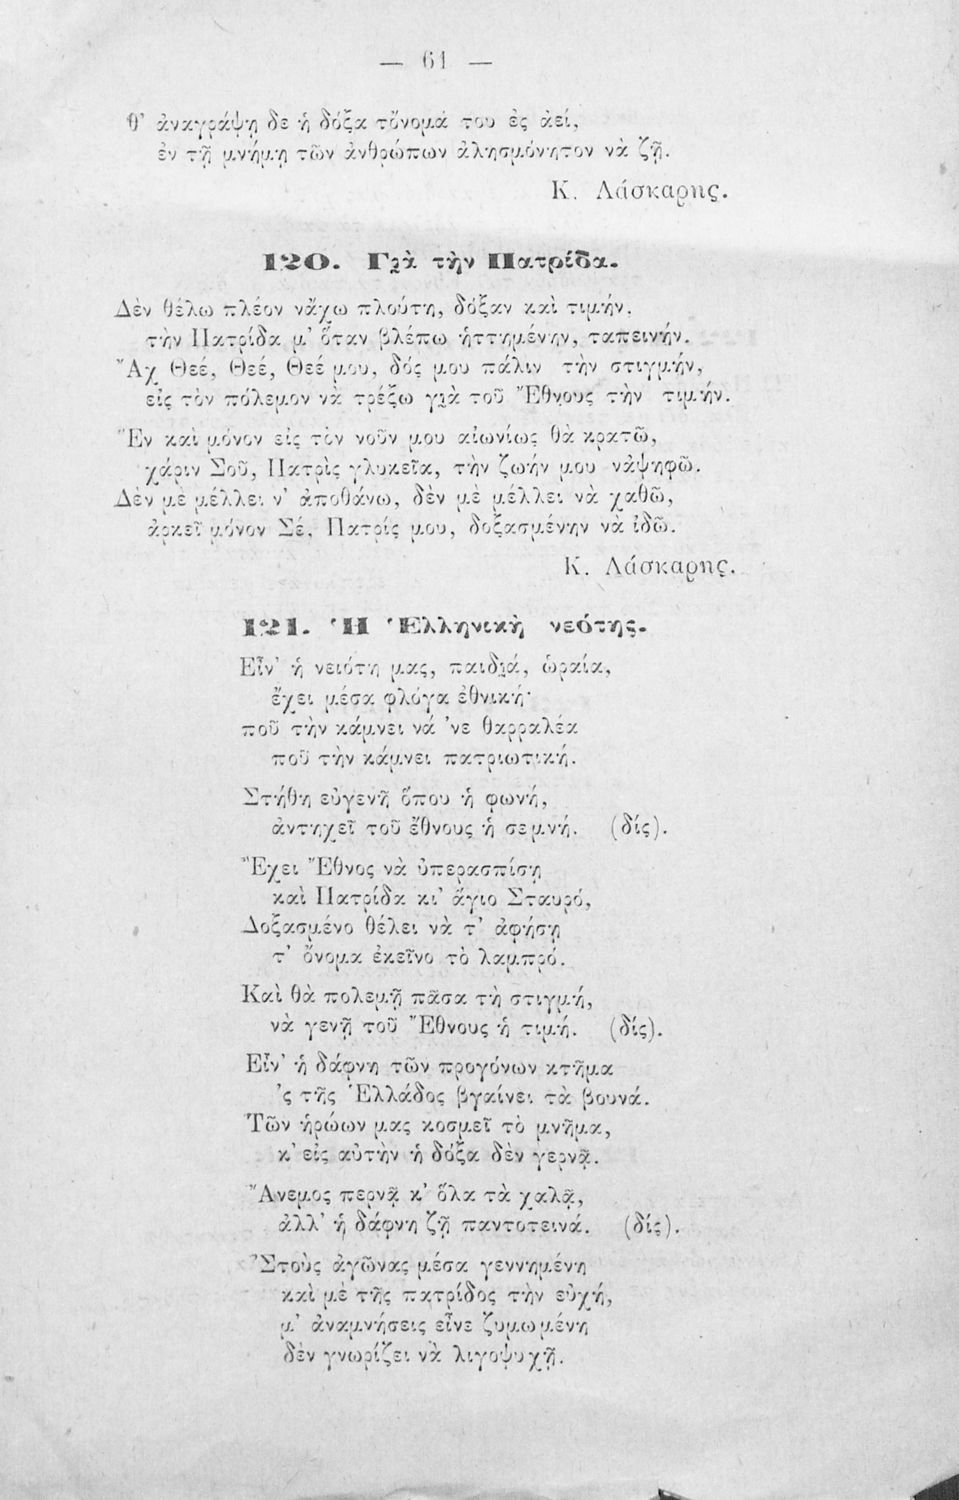 — 61 —
θ’ ἀναγράψῃ δε ἡ δόξα τὄνομά του ἐς ἀεί,
ἐν τῇ μνήμῃ τῶν ἀνθρώπων ἀλησμόνητον νὰ ζῇ.
Κ. Λάσκαρης.
120. Γι̯ὰ τὴν Πατρίδα.
Δὲν θέλω πλέον νἄχω πλούτη, δόξαν καὶ τιμήν,
τὴν Πατρίδα μ’ ὅταν βλέπω ἡττημένην, ταπεινήν.
Ἂχ Θεέ, Θεέ, Θεέ μου, δός μου πάλιν τὴν στιγμήν,
εἰς τὸν πόλεμον νὰ τρέξω γι̯ὰ τοῦ Ἔθνους τὴν τιμήν.
Ἓν καὶ μόνον εἰς τὸν νοῦν μου αἰωνίως θὰ κρατῶ,
χάριν Σοῦ, Πατρὶς γλυκεῖα, τὴν ζωήν μου νἀψηφῶ.
Δὲν μὲ μέλλει ν’ ἀποθάνω, δὲν μὲ μέλλει νὰ χαθῶ,
ἀρκεῖ μόνον Σέ, Πατρίς μου, δοξασμένην νὰ ἰδῶ.
Κ. Λάσκαρης.
121. Ἡ Ἑλληνικὴ νεότης.
Εἶν’ ἡ νειότη μας, παιδι̯ά, ὡραία,
ἔχει μέσα φλόγα ἐθνική·
ποῦ τὴν κάμνει νά ’νε θαρραλέα
ποῦ τὴν κάμνει πατριωτική.
Στήθη εὐγενῆ ὅπου ἡ φωνή,
ἀντηχεῖ τοῦ ἔθνους ἡ σεμνή. (δίς).
Ἔχει Ἔθνος νὰ ὑπερασπίσῃ
καὶ Πατρίδα κι’ ἅγιο Σταυρό,
Δοξασμένο θέλει νὰ τ’ ἀφήσῃ
τ’ ὄνομα ἐκεῖνο τὸ λαμπρό.
Καὶ θὰ πολεμῇ πᾶσα τὴ στιγμή,
νὰ γενῇ τοῦ Ἔθνους ἡ τιμή. (δίς).
Εἶν’ ἡ δάφνη τῶν προγόνων κτῆμα
’ς τῆς Ἑλλάδος βγαίνει τὰ βουνά.
Τῶν ἡρώων μας κοσμεῖ τὸ μνῆμα,
κ’ εἰς αὐτὴν ἡ δόξα δὲν γερνᾷ.
Ἄνεμος περνᾷ κ’ ὅλα τὰ χαλᾷ,
ἀλλ’ ἡ δάφνη ζῇ παντοτεινά. (δίς).
’Στοὺς ἀγῶνας μέσα γεννημένη
καὶ μὲ τῆς πατρίδος τὴν εὐχή,
μ’ ἀναμνήσεις εἶνε ζυμωμένη
δὲν γνωρίζει νὰ λιγοψυχῇ.